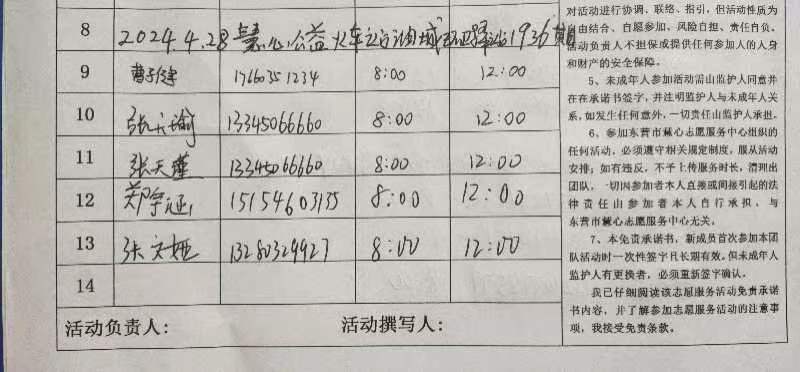 8 2024.4.28 慧心公益火车 1936
9 1766035 1234 8:00 12:00
10 张 13345066660 8:00 12:00
11 张天 13345066660 8:00 12:00
12 郑宇 15154603135 8:00 12:00
13 张文 13280329927 8:00 12:00
14
活动负责人： 活动撰写人：
对活动进行协调、联络、指引，但活动性质为
自由结合、自愿参加、风险自担、责任自负。
活动负责人不担保或提供任何参加人的人身
和财产的安全保障。
5、未成年人参加活动需由监护人同意并
在在承诺书签字，并注明监护人与未成年人关
系，如发生任何意外，一切责任由监护人承担。
6、参加东营市慧心志愿服务中心组织的
任何活动，必须遵守相关规定制度，服从活动
安排；如有违反，不予上传服务时长，清理出
团队，一切因参加者本人直接或间接引起的法
律责任由参加者本人自行承担，与
东营市慧心志愿服务中心无关。
7、本免责承诺书，新成员首次参加本团
队活动时一次性签字且长期有效。但未成年人
监护人有更换者，必须重新签字确认。
我已仔细阅读该志愿服务活动免责承诺
书内容，并了解参加志愿服务活动的注意事
项，我接受免责条款。